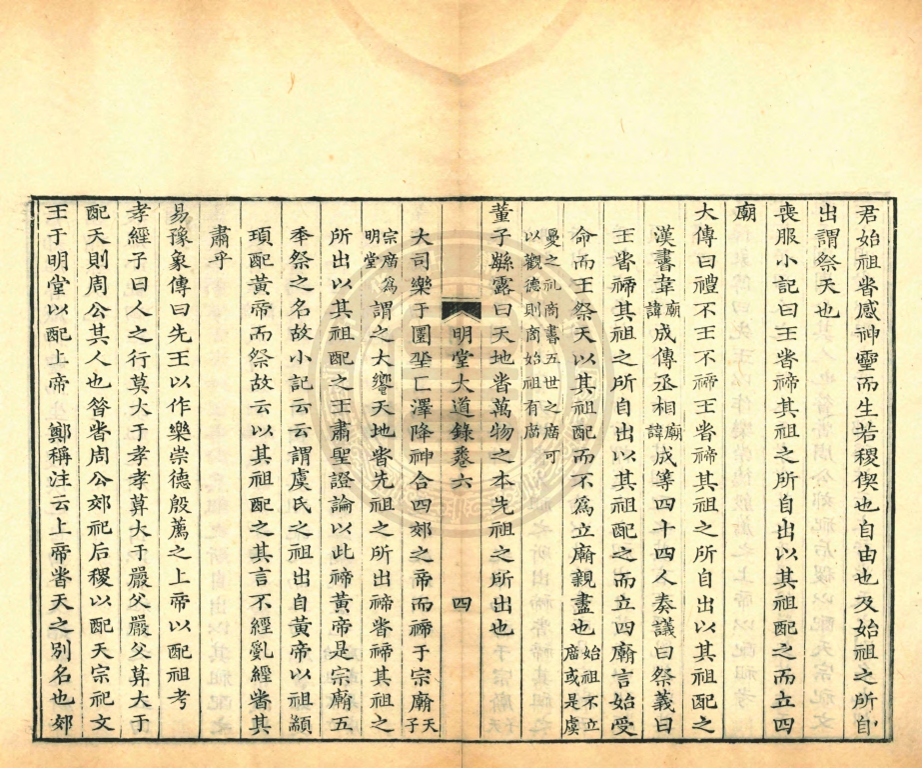 君始祖者感神靈而生若稷偰也自由也及始祖之所自
出謂祭天也
喪服小記曰王者禘其祖之所自出以其祖配之而立四
廟
大傳曰禮不王不禘王者禘其祖之所自出以其祖配之
漢書韋廟諱成傳丞相廟諱成等四十四人奏議曰祭義曰
王者禘其祖之所自出以其祖配之而立四廟言始受
命而王祭天以其祖配而不爲立廟親盡也始祖不立廟或是虞
夏之礼商書五世之廟可以觀德則商始祖有廟
董子緐露曰天地者萬物之本先祖之所出也
明堂大道錄卷六 四
大司樂于圜丠匚澤降神合四郊之帝而禘于宗廟天子
宗廟爲明堂謂之大饗天地者先祖之所出禘者禘其祖之
所出以其祖配之王肅聖證論以此禘黄帝是宗廟五
秊祭之名故小記云云謂虞氏之祖出自黄帝以祖顓
頊配黄帝而祭故云以其祖配之其言不經亂經者其
肅乎
易豫象傳曰先王以作樂崇德殷薦之上帝以配祖考
孝經子曰人之行莫大于孝孝莫大于嚴父嚴父莫大于
配天則周公其人也昝者周公郊祀后稷以配天宗祀文
王于明堂以配上帝鄭稱注云上帝者天之别名也郊